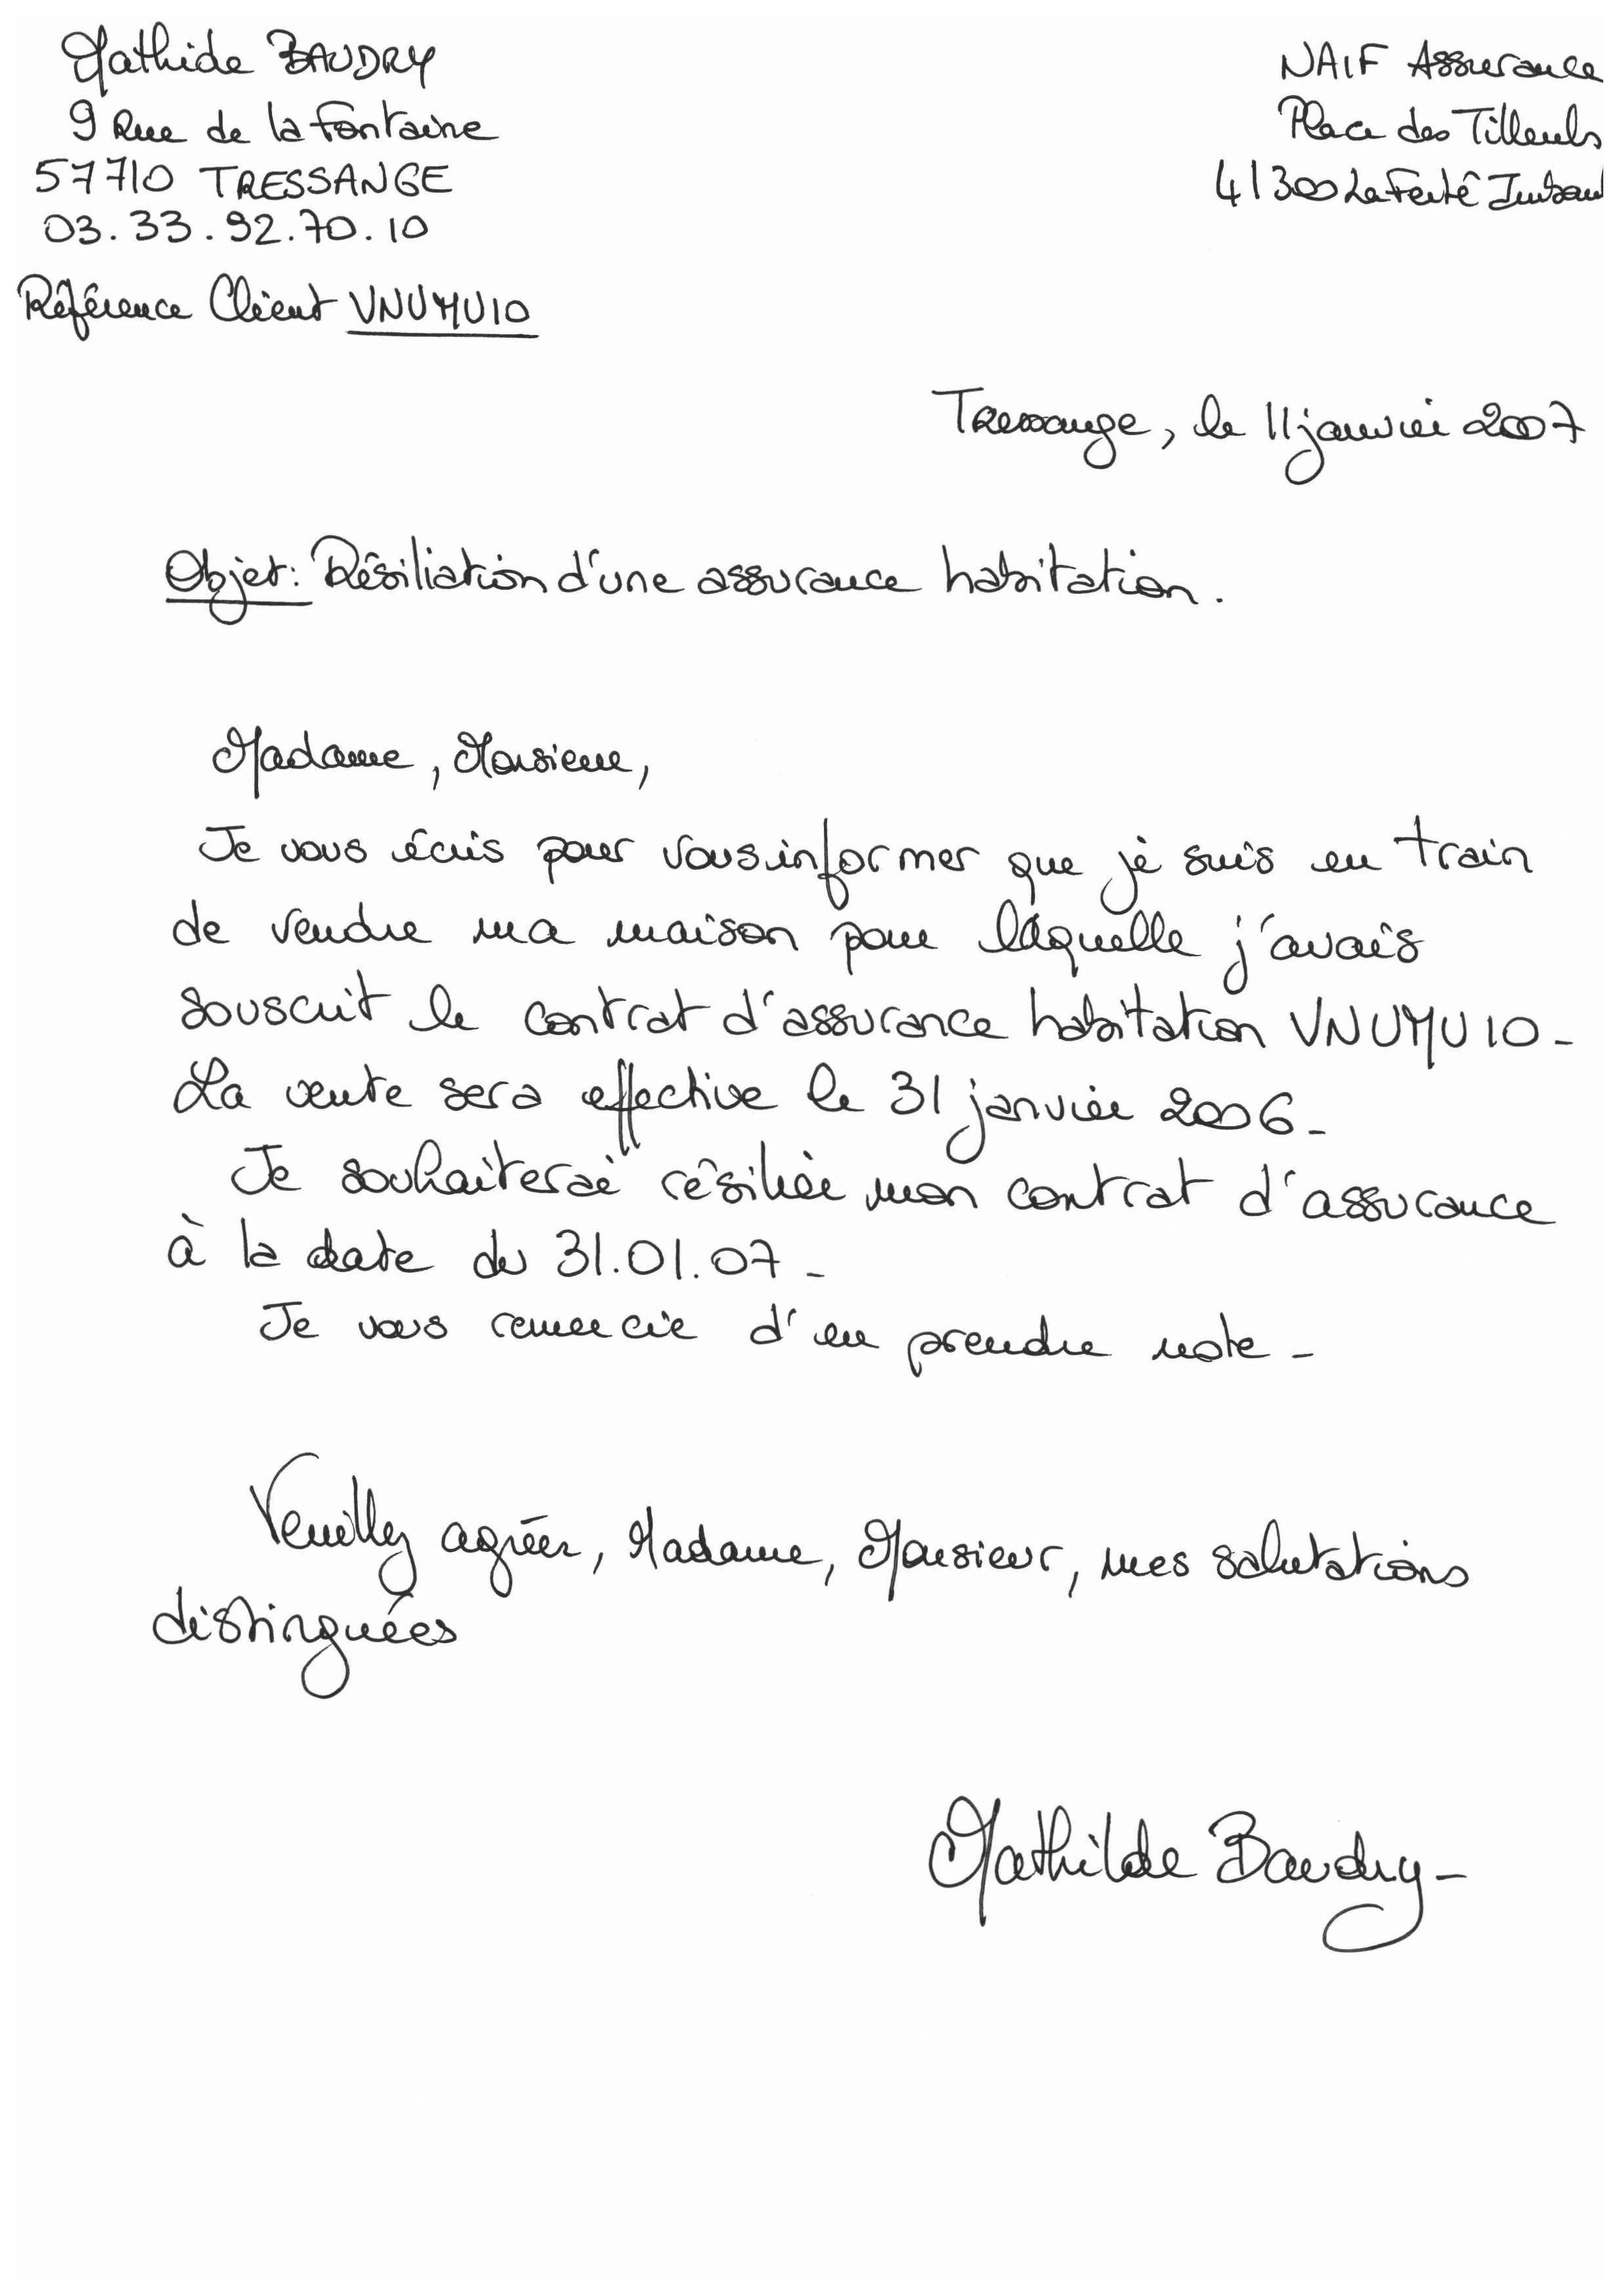 Mathide BAUDRY
9 Rue de la Fontaine
57710 TRESSANGE
03.33.92.70.10
Référence Client VNUMU10
NAIF Assurance
Place des Tilleuls
41300 La Ferté Imbau
Tressange, le 11 janvier 2007
Objet: Résiliation d'une assurance habitation.
Madame, Monsieur,
Je vous écris pour vous informer que je suis en train
de vendre ma maison pour laquelle j'avais
souscrit le contrat d'assurance habitation VNUMU10-
La vente sera effective le 31 janvier 2006-
Je souhaiterai résilier mon contrat d'assurance
à la date du 31.01.07-
Je vous remercie d'en prendre note-
Veuillez agréer, Madame, Monsieur, mes salutations
distinguées
Mathilde Baudry-